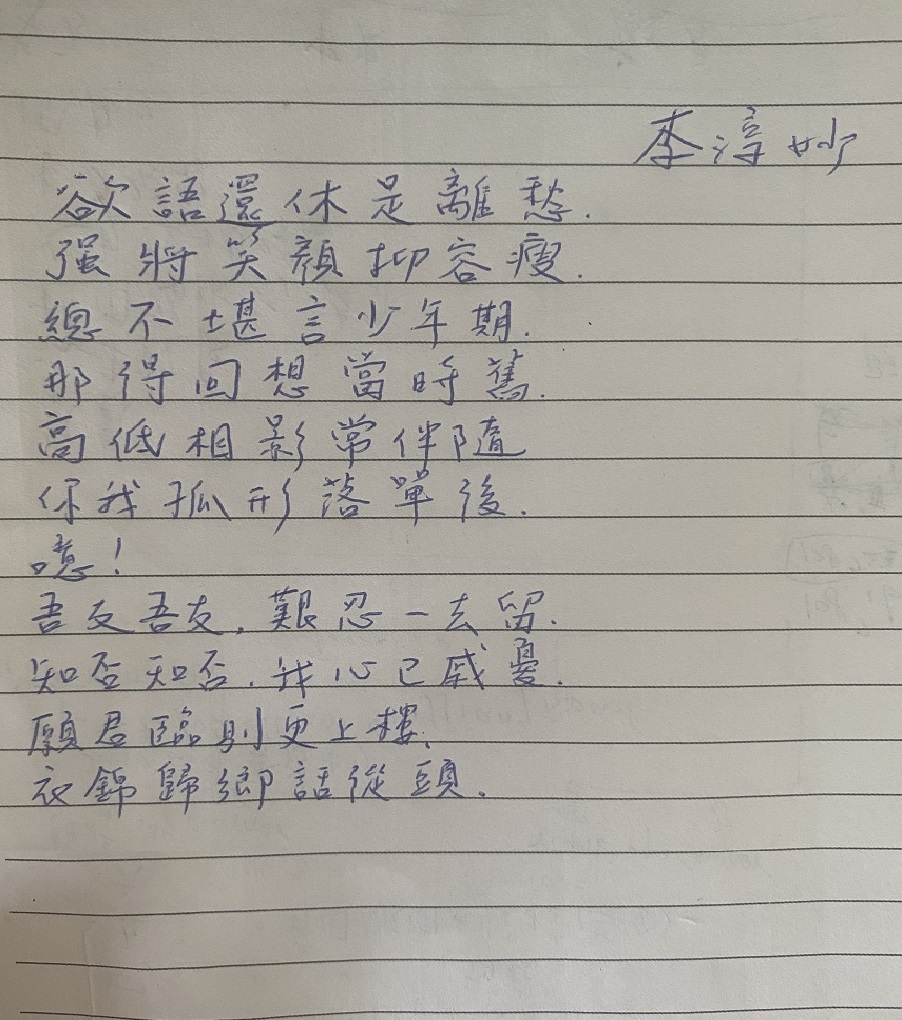 李淳妙
欲語還休是離愁.
强將笑顏抑容瘦.
總不堪言少年期.
那得回想當時舊.
高低相影常伴隨
你我孤形落單後.
噫!
吾友吾友,艱忍一去留.
知否知否,我心已戚憂.
願君臨別更上樓,
衣錦歸鄉話從頭.